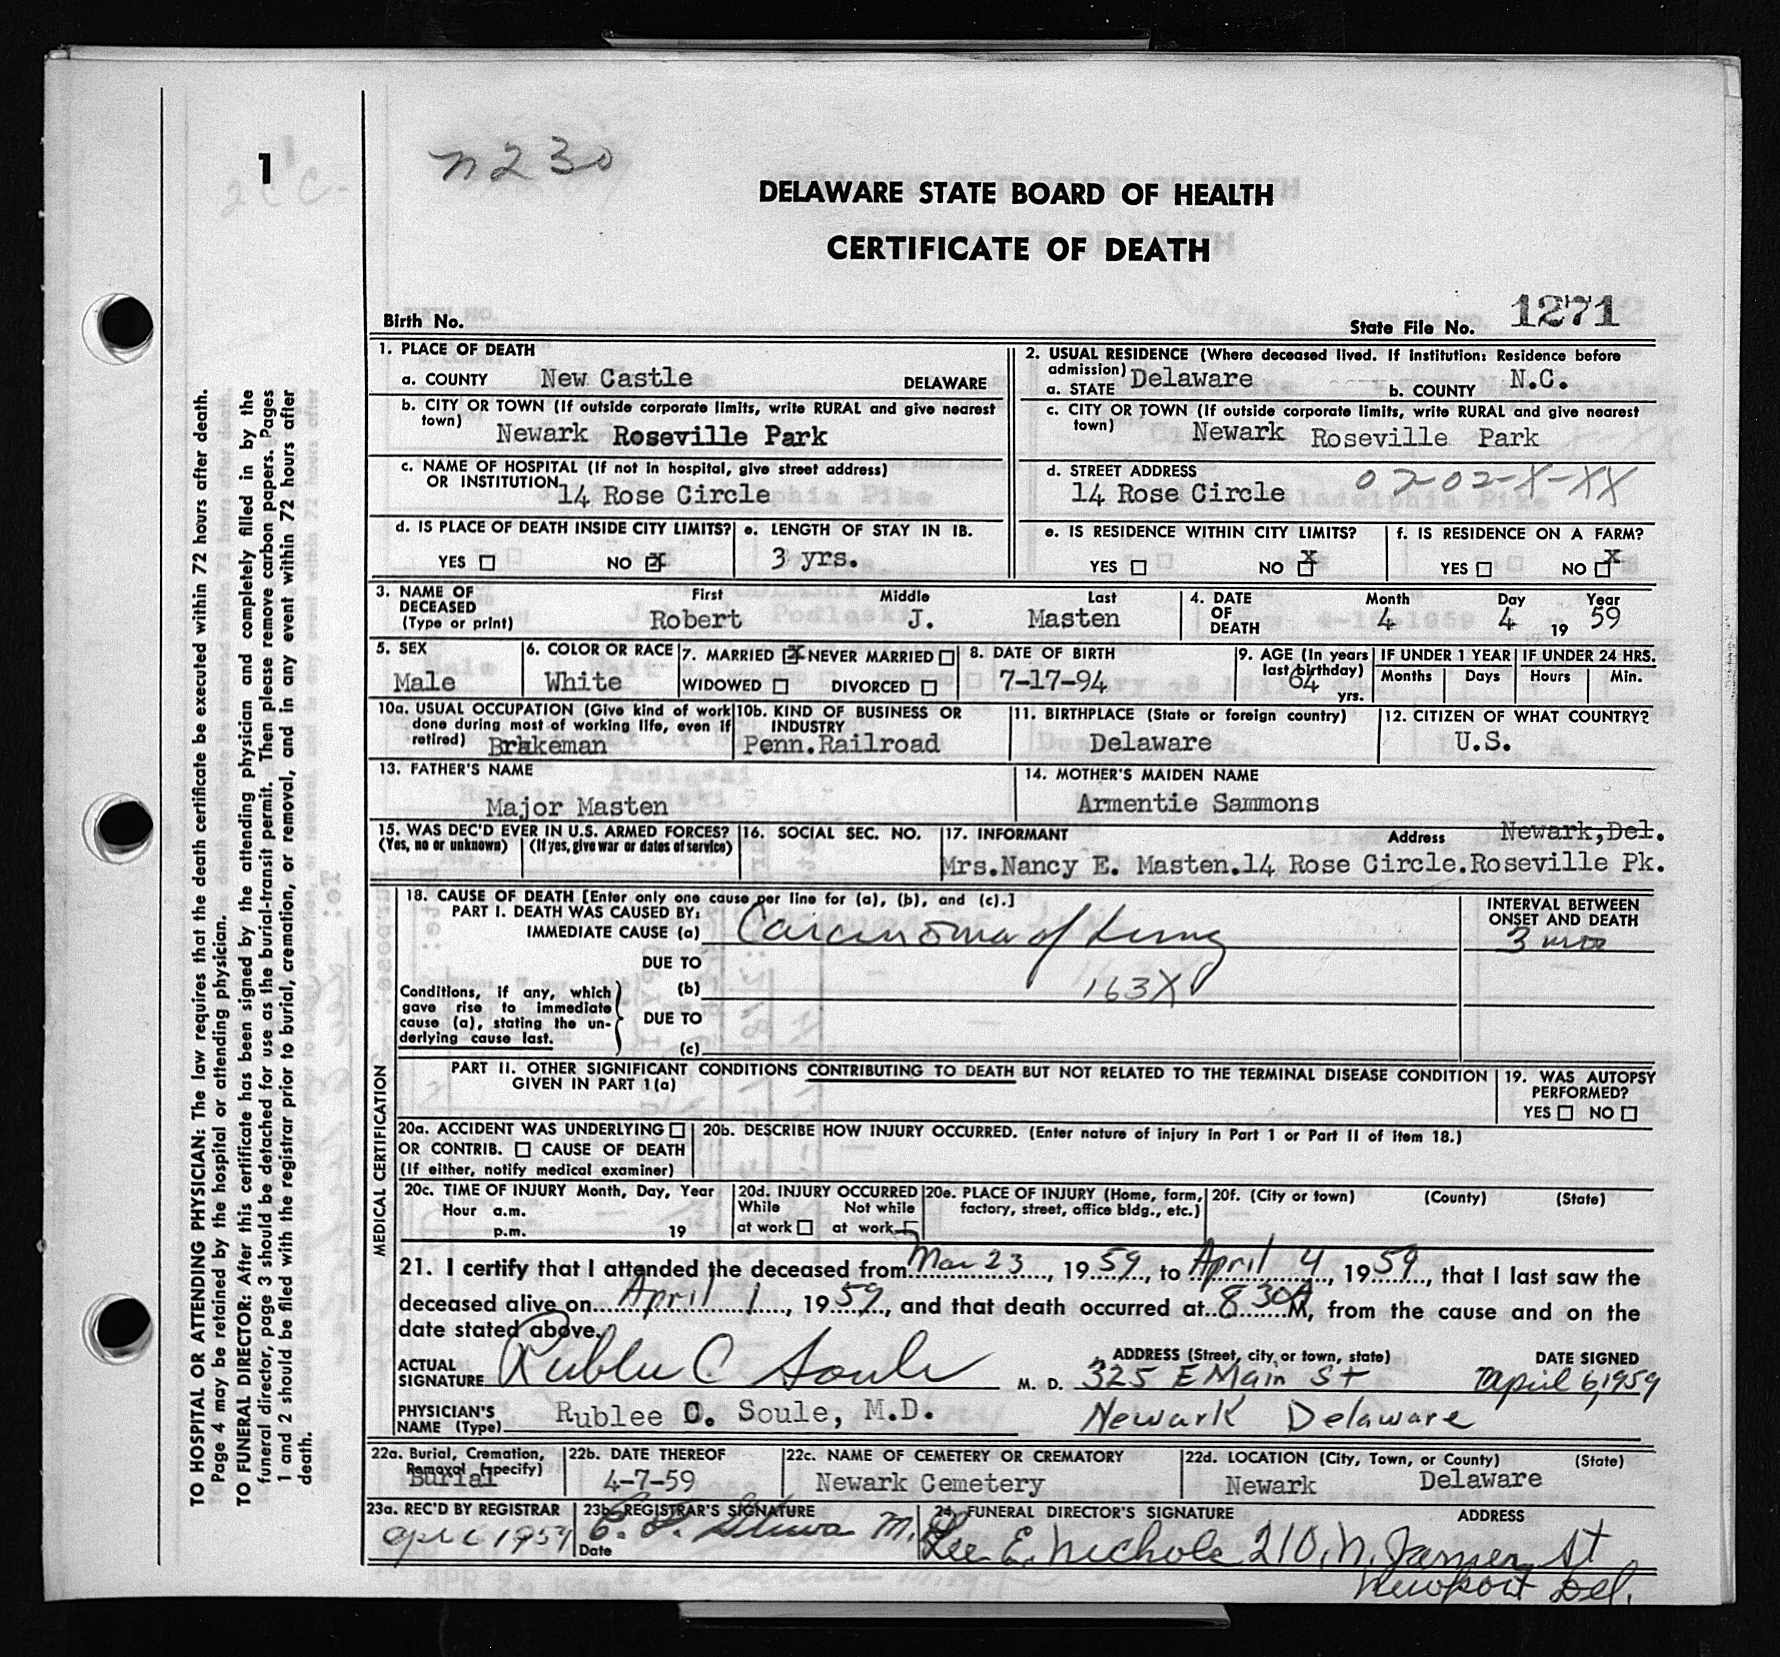 1
2CC-
n230
DELAWARE STATE BOARD OF HEALTH
CERTIFICATE OF DEATH
Birth No.
State File No. 1271
1. PLACE OF DEATH
a. COUNTY New Castle DELAWARE
b. CITY OR TOWN (If outside corporate limits, write RURAL and give nearest
town) Newark Roseville Park
c. NAME OF HOSPITAL (If not in hospital, give street address)
OR INSTITUTION 14 Rose Circle
d. IS PLACE OF DEATH INSIDE CITY LIMITS? e. LENGTH OF STAY IN 1B.
YES ☐ NO ☒ 3 yrs.
2. USUAL RESIDENCE (Where deceased lived. If institution: Residence before
admission)
a. STATE Delaware b. COUNTY N.C.
c. CITY OR TOWN (If outside corporate limits, write RURAL and give nearest
town) Newark Roseville Park
d. STREET ADDRESS 0702-X-XX
14 Rose Circle
e. IS RESIDENCE WITHIN CITY LIMITS? f. IS RESIDENCE ON A FARM?
YES ☐ NO ☒ YES ☐ NO ☒
3. NAME OF DECEASED (Type or print) First Middle Last
Robert J. Masten
4. DATE OF DEATH Month Day Year
4 4 19 59
5. SEX Male
6. COLOR OR RACE White
7. MARRIED ☒ NEVER MARRIED ☐
WIDOWED ☐ DIVORCED ☐
8. DATE OF BIRTH 7-17-94
9. AGE (In years last birthday) 64 yrs.
IF UNDER 1 YEAR Months Days
IF UNDER 24 HRS. Hours Min.
10a. USUAL OCCUPATION (Give kind of work
done during most of working life, even if
retired) Brakeman
10b. KIND OF BUSINESS OR INDUSTRY
Penn.Railroad
11. BIRTHPLACE (State or foreign country)
Delaware
12. CITIZEN OF WHAT COUNTRY?
U.S.
13. FATHER'S NAME
Major Masten
14. MOTHER'S MAIDEN NAME
Armentie Sammons
15. WAS DEC'D EVER IN U.S. ARMED FORCES?
(Yes, no or unknown) (If yes, give war or dates of service)
16. SOCIAL SEC. NO.
17. INFORMANT Address Newark,Del.
Mrs.Nancy E. Masten.14 Rose Circle.Roseville Pk.
MEDICAL CERTIFICATION
18. CAUSE OF DEATH [Enter only one cause per line for (a), (b), and (c).]
PART I. DEATH WAS CAUSED BY:
IMMEDIATE CAUSE (a) Carcinoma of Lung
INTERVAL BETWEEN
ONSET AND DEATH
3 mos
DUE TO
(b) 163X
Conditions, if any, which
gave rise to immediate
cause (a), stating the un-
derlying cause last.
DUE TO
(c)
PART II. OTHER SIGNIFICANT CONDITIONS CONTRIBUTING TO DEATH BUT NOT RELATED TO THE TERMINAL DISEASE CONDITION
GIVEN IN PART 1(a)
19. WAS AUTOPSY
PERFORMED?
YES ☐ NO ☐
20a. ACCIDENT WAS UNDERLYING ☐
OR CONTRIB. ☐ CAUSE OF DEATH
(If either, notify medical examiner)
20b. DESCRIBE HOW INJURY OCCURRED. (Enter nature of injury in Part 1 or Part II of item 18.)
20c. TIME OF INJURY Month, Day, Year
Hour a.m.
p.m. 19
20d. INJURY OCCURRED
While Not while
at work ☐ at work ☐
20e. PLACE OF INJURY (Home, farm,
factory, street, office bldg., etc.)
20f. (City or town) (County) (State)
21. I certify that I attended the deceased from Mar 23, 1959, to April 4, 1959, that I last saw the
deceased alive on April 1, 1959, and that death occurred at 8 30A M, from the cause and on the
date stated above.
ACTUAL
SIGNATURE Rublee C. Soule M. D.
ADDRESS (Street, city or town, state) DATE SIGNED
325 E Main St April 6, 1959
PHYSICIAN'S
NAME (Type) Rublee C. Soule, M.D.
Newark Delaware
22a. Burial, Cremation,
Removal (specify)
Burial
22b. DATE THEREOF
4-7-59
22c. NAME OF CEMETERY OR CREMATORY
Newark Cemetery
22d. LOCATION (City, Town, or County) (State)
Newark Delaware
23a. REC'D BY REGISTRAR
Apr 6 1959
23b. REGISTRAR'S SIGNATURE
Date
24. FUNERAL DIRECTOR'S SIGNATURE ADDRESS
Lee E. Nichols 210 N. James St
Newport Del.
TO HOSPITAL OR ATTENDING PHYSICIAN: The law requires that the death certificate be executed within 72 hours after death.
Page 4 may be retained by the hospital or attending physician.
TO FUNERAL DIRECTOR: After this certificate has been signed by the attending physician and completely filled in by the
funeral director, page 3 should be detached for use as the burial-transit permit. Then please remove carbon papers. Pages
1 and 2 should be filed with the registrar prior to burial, cremation, or removal, and in any event within 72 hours after
death.